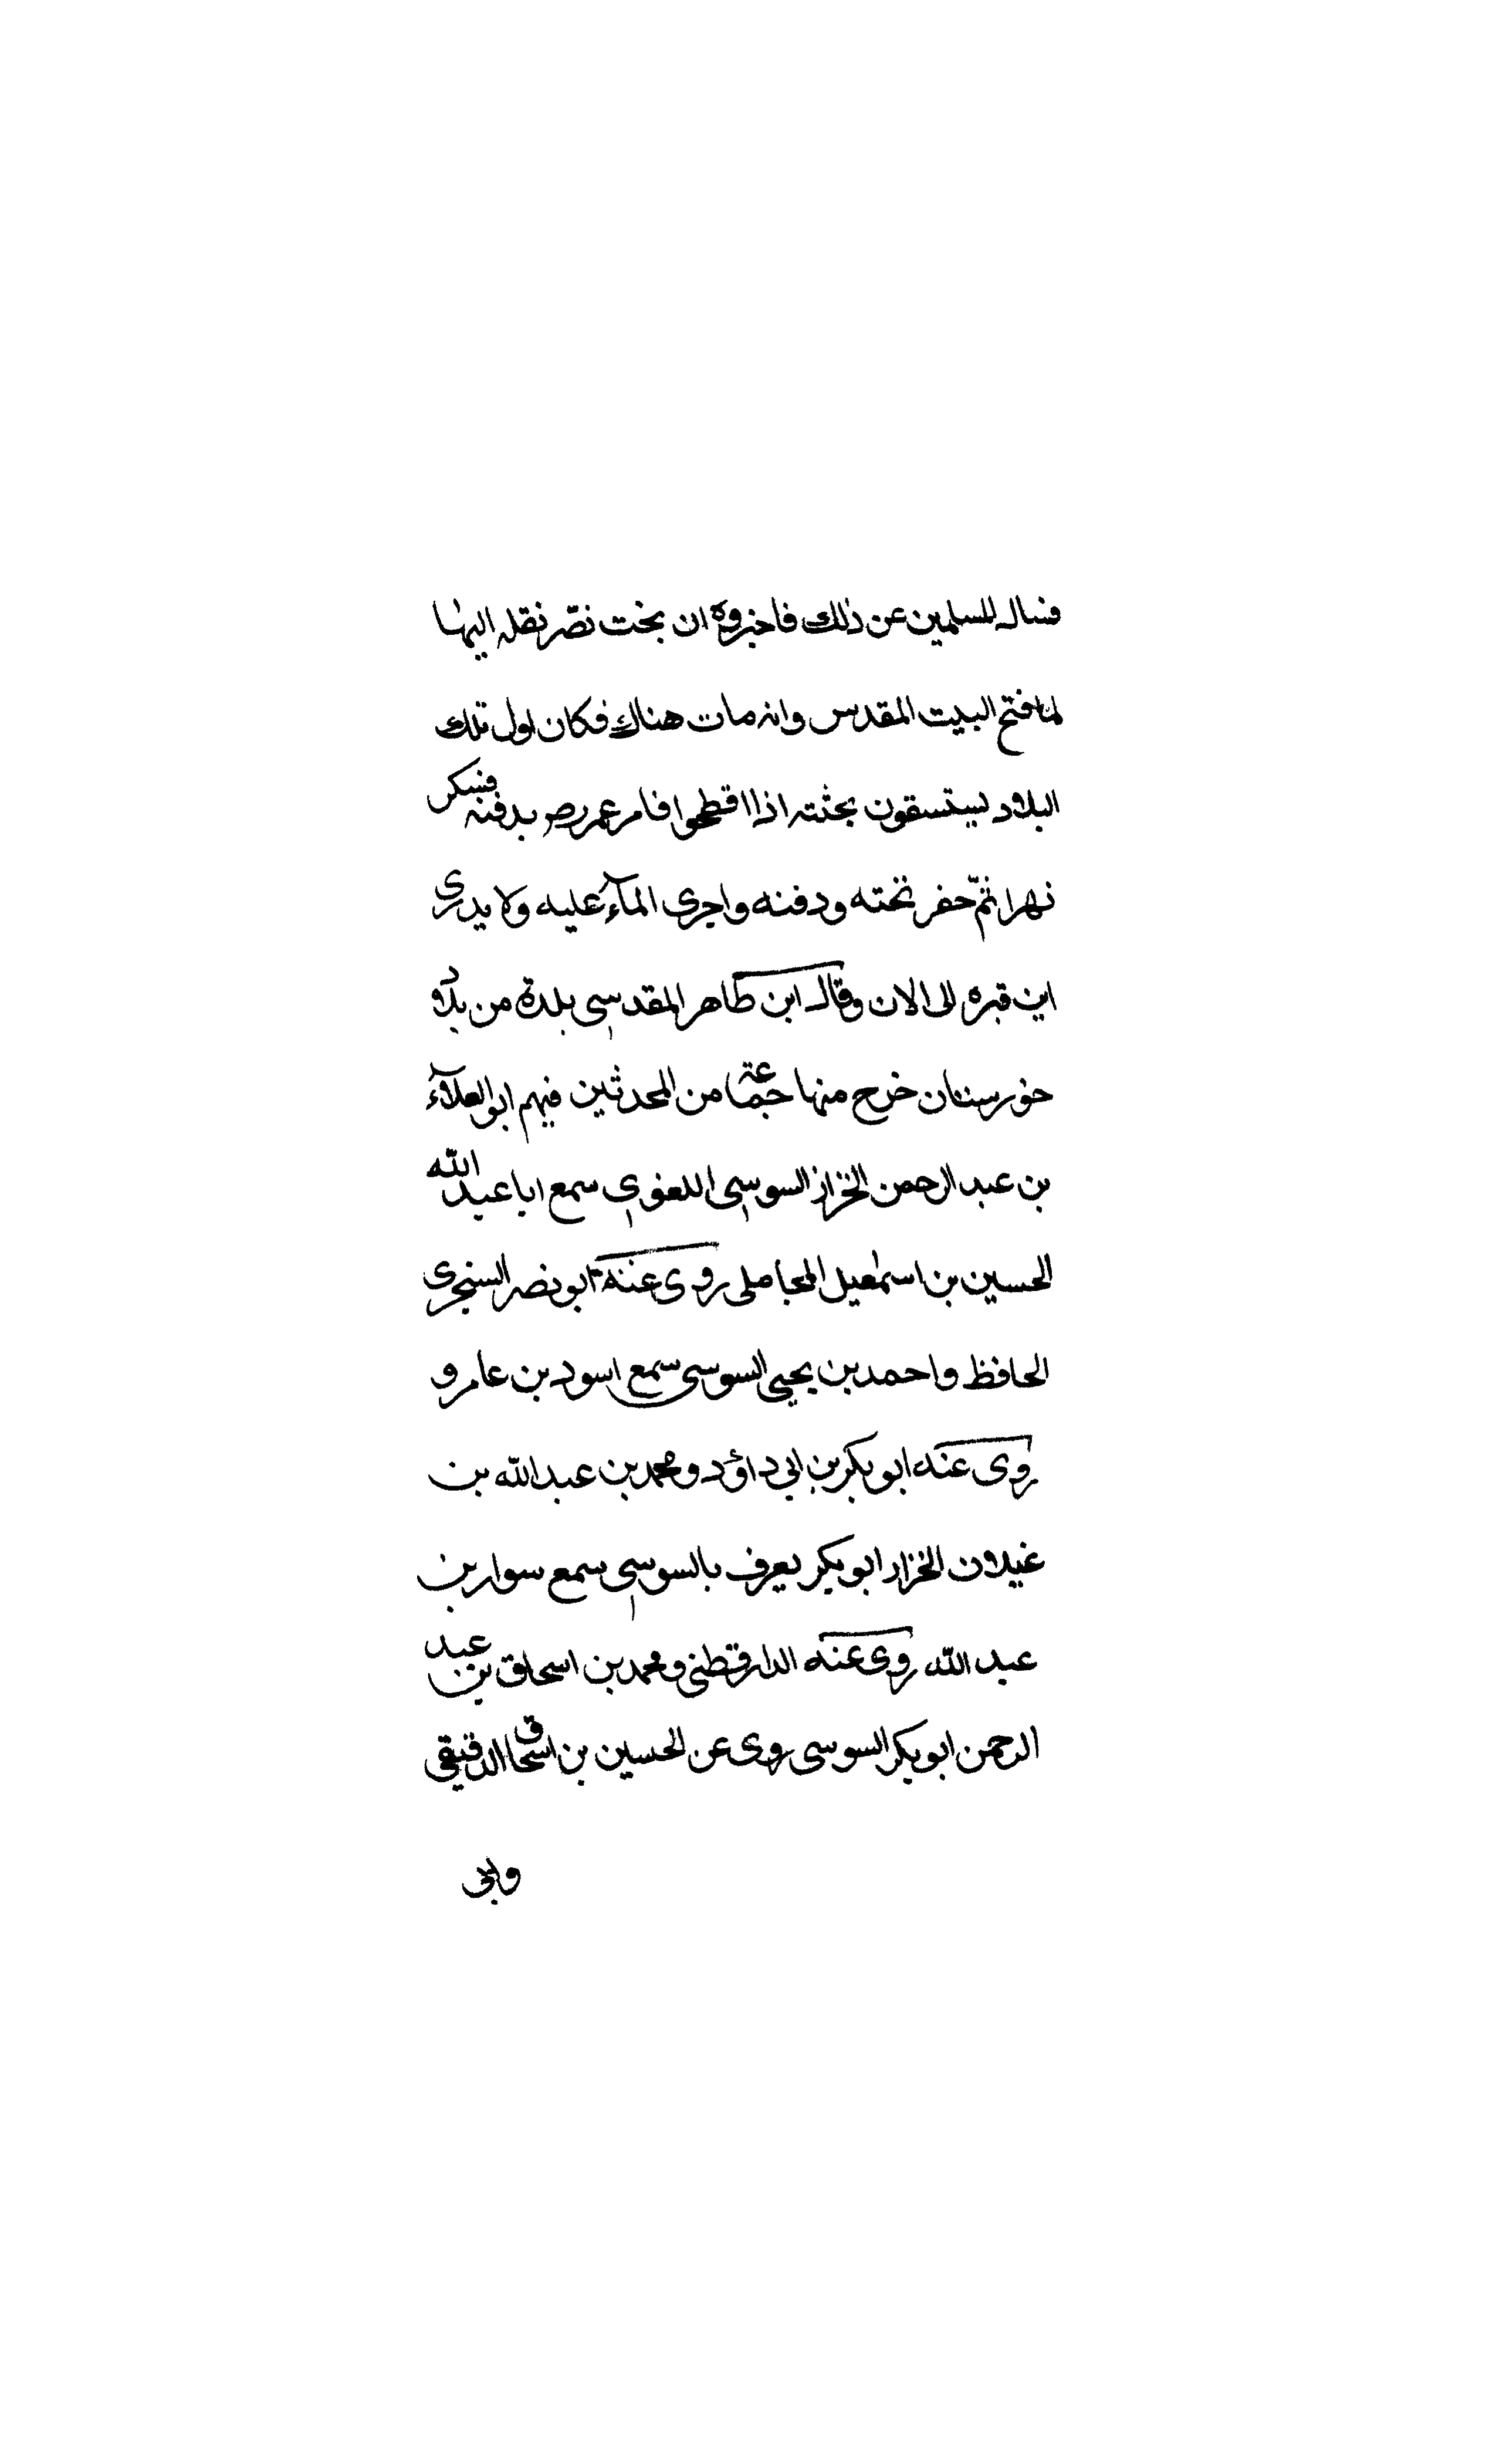 فسال المسلمين عن ذلك فاخبروه ان بخت نصّر نقله اليها
لما فتح البيت المقدس وانه مات هناك فكان اول تلك
البلاد يستسقون بجثته اذا اقطحوا فامر عمر رص بدفنه فسكر
نهرا ثمّ حفر تحته ودفنه واجرى المآء عليه ولا يدرى
اين قبره الى الان وقال ابن طاهر المقدسى بلدة من بلاد
خورستان خرج منها جماعة من المحدثين فيهم ابو العلاء
بن عبد الرحمن الخزاز السوسى اللغوى سمع ابا عبد الله
الحسين بن اسمعيل المحاملى روى عنه ابو نصر السنجرى
الحافظ واحمد بن يحيى السوسى سمع اسود بن عامر و
روى عنه ابو بكر بن ابى داؤد ومحمد بن عبد الله بن
غيلان الخزاز ابو بكر يعرف بالسوسى سمع سوار بن
عبد الله روى عنه الدارقطنى ومحمد بن اسحاق بن عبد
الرحمن ابو بكر السوسى روى عن الحسين بن اسحاق الدقيقى
وابى